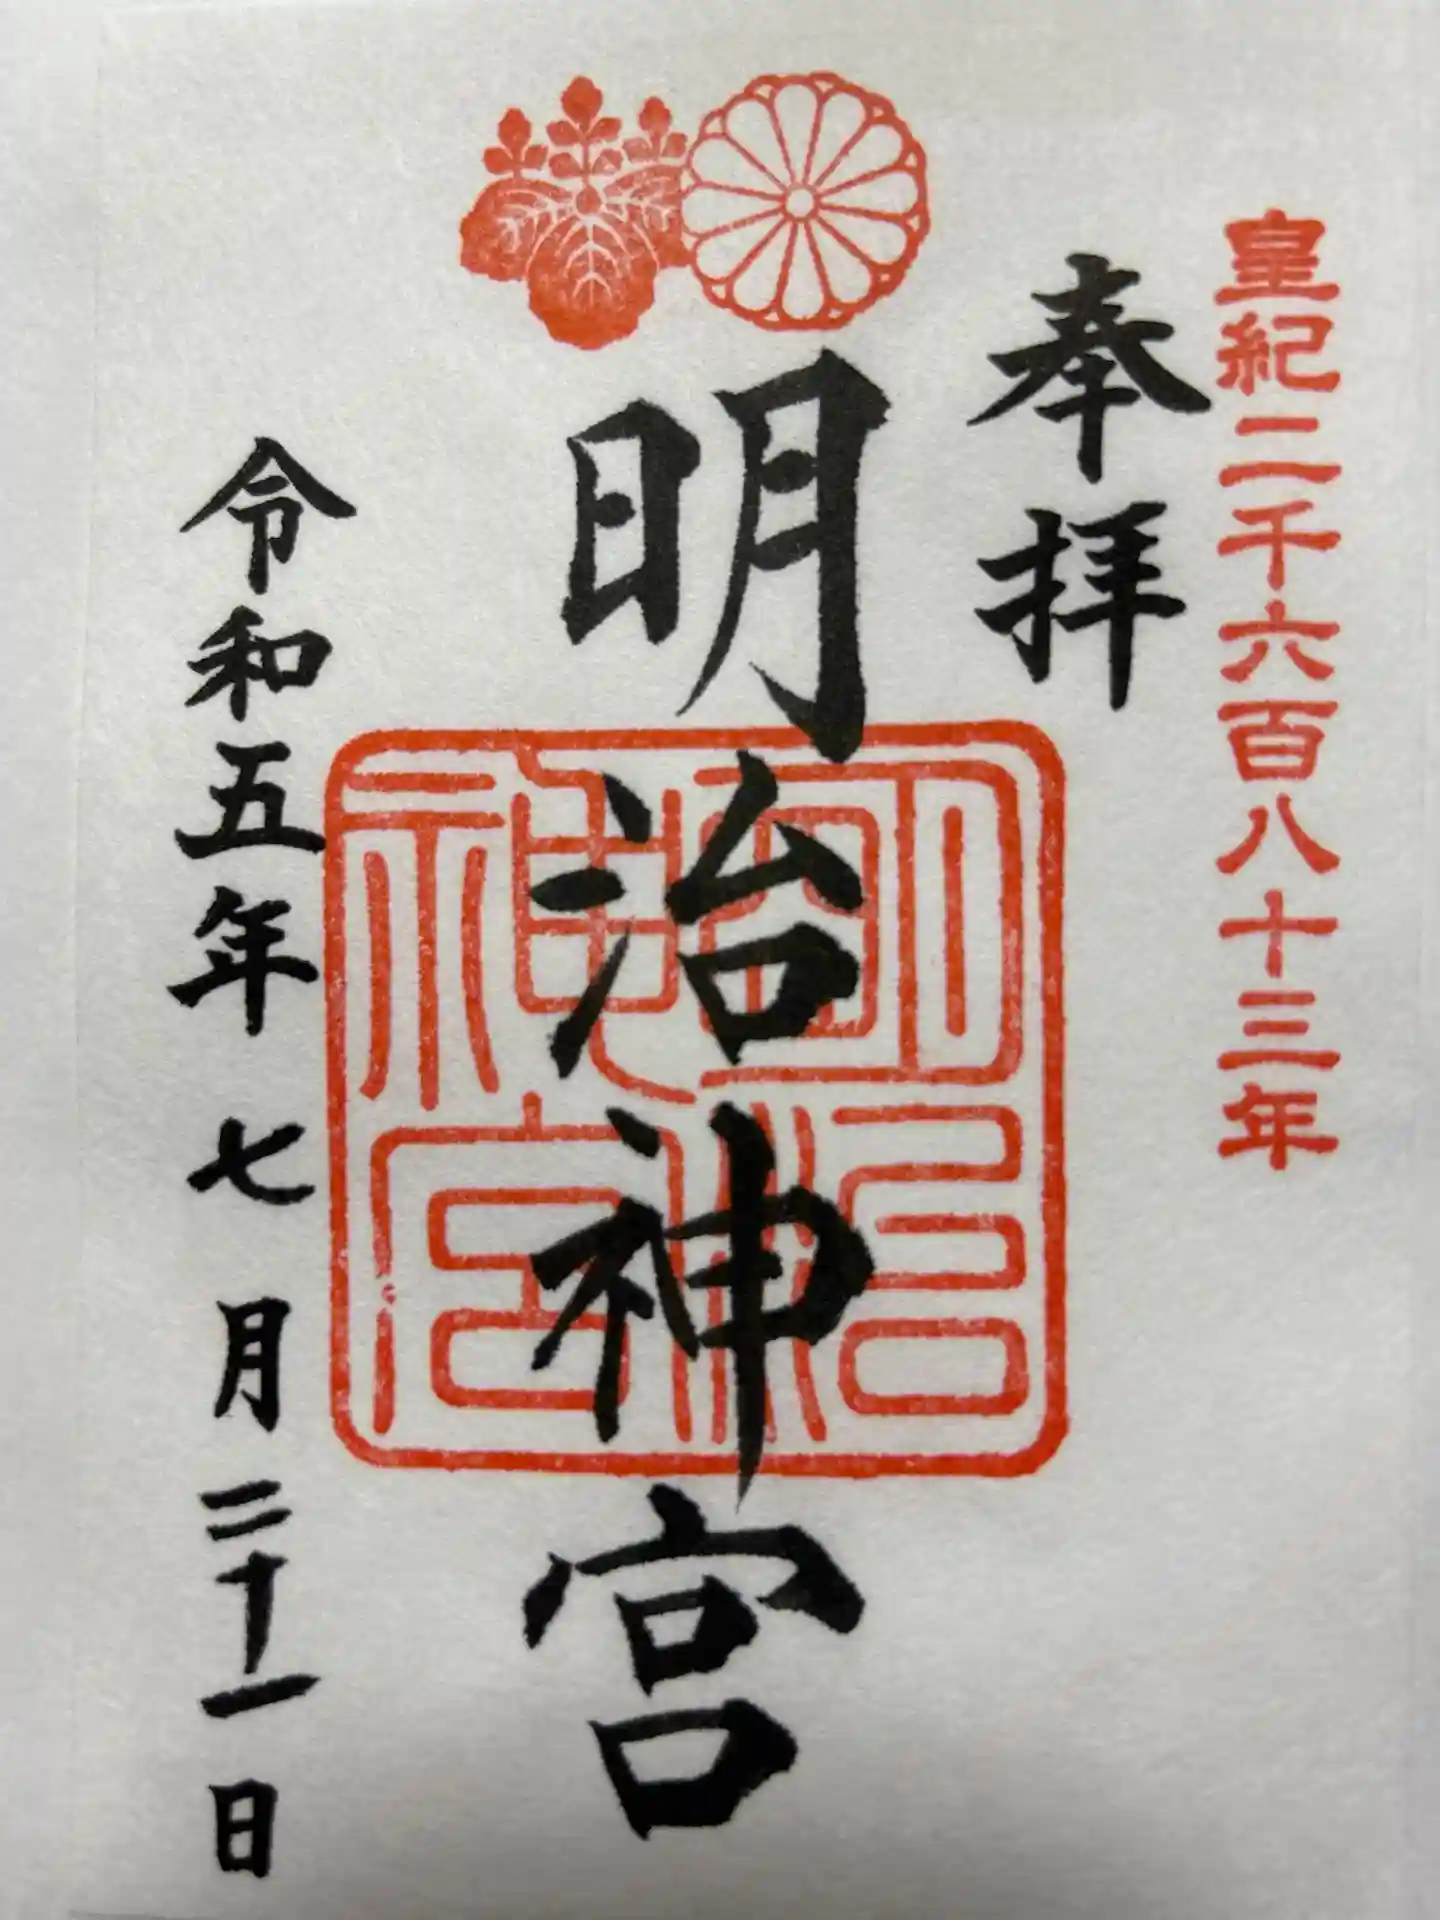 皇紀二千六百八十三年
奉拝
明治神宮
明治神宮
令和五年七月二十一日